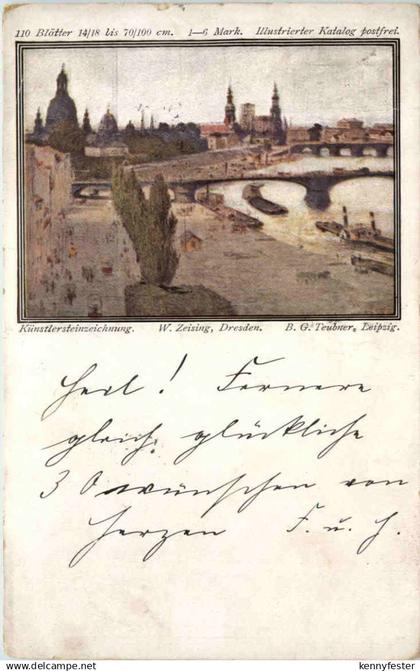 110 Blätter 14/18 bis 70/100 cm. 1—6 Mark. Illustrierter Katalog postfrei.
Künstlersteinzeichnung. W. Zeising, Dresden. B. G. Teubner, Leipzig.
Heil! Fernere
gleich glückliche
30 wünschen von
Herzen F. u. H.
kennyfester